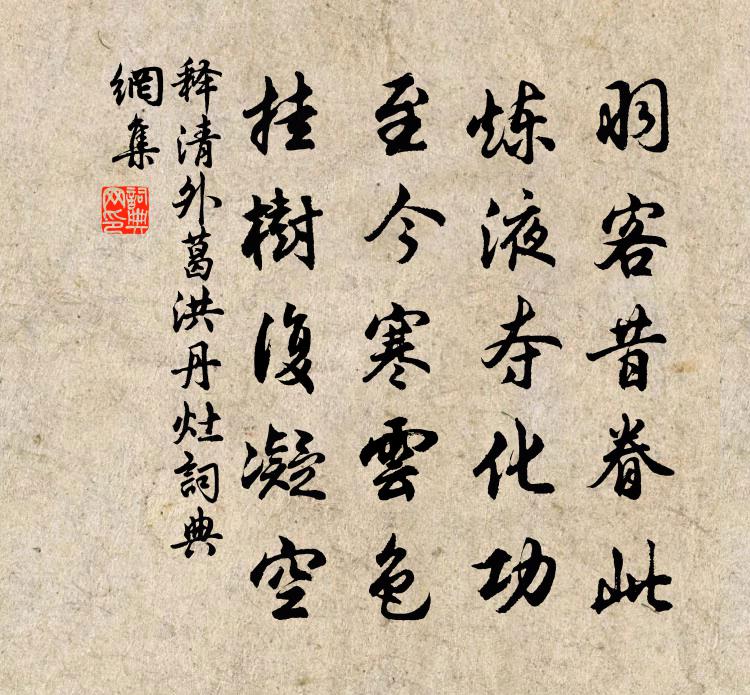 羽客昔眷此
炼液夺化功
至今寒雲色
挂樹復凝空
释清外葛洪丹灶詞典
網集
詞典网印